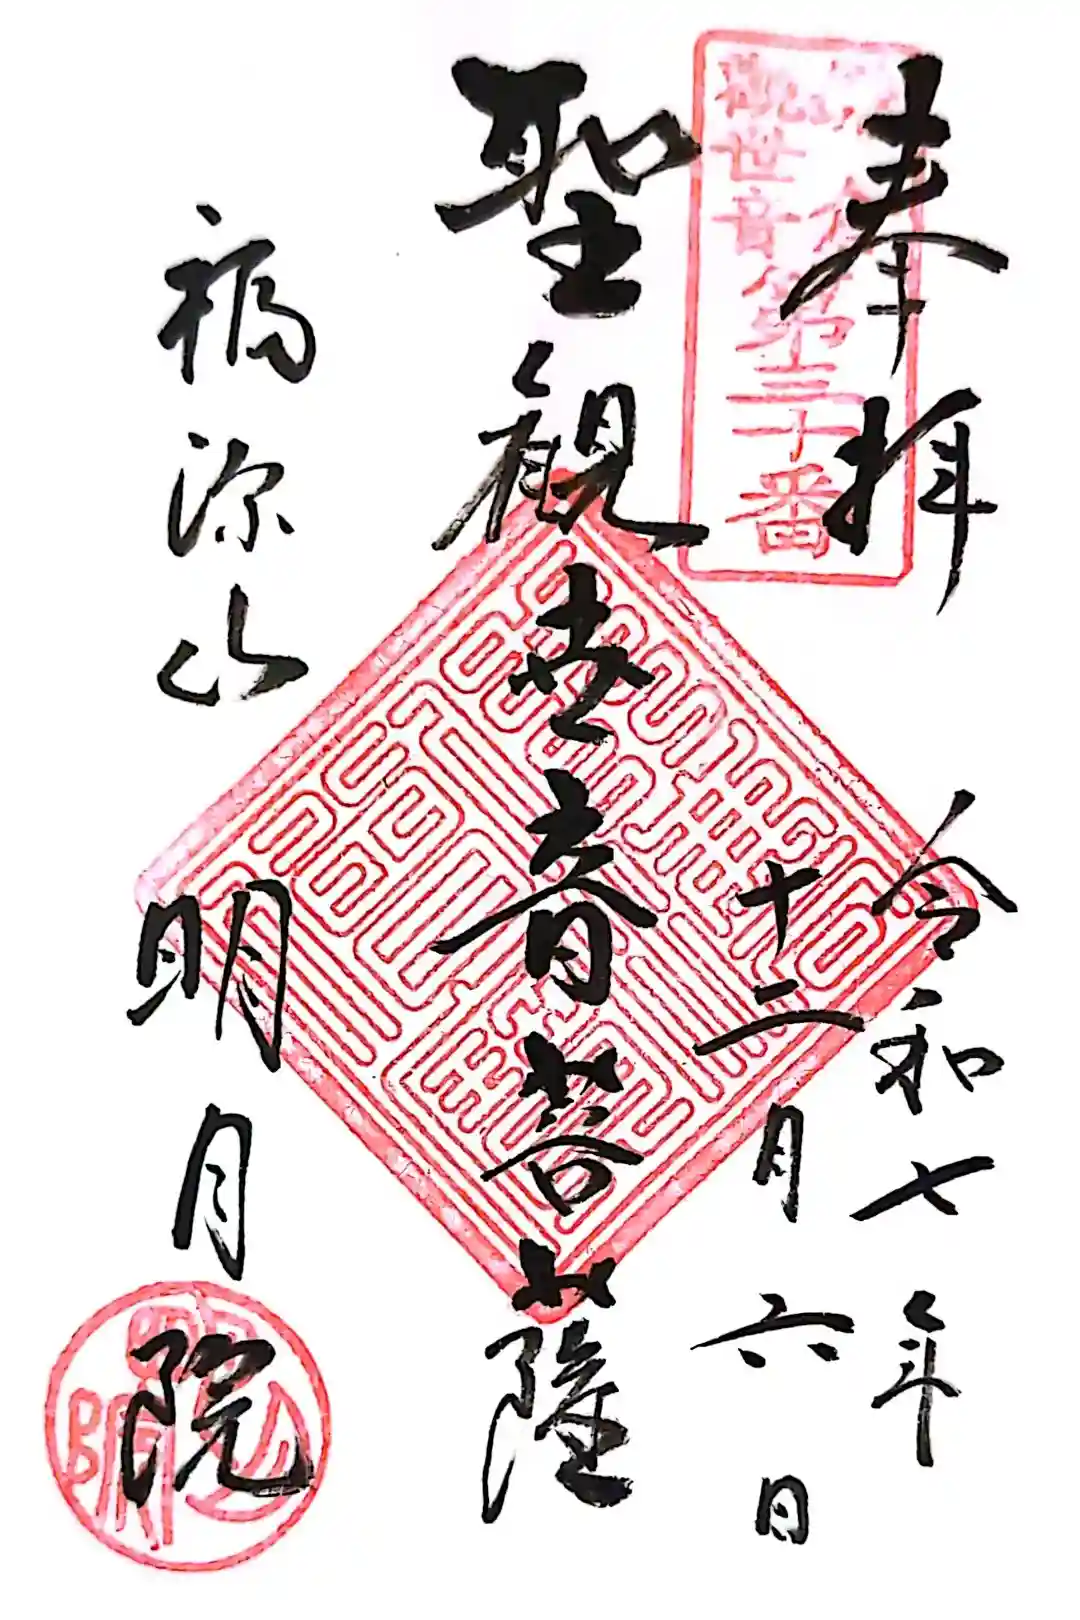 奉拝
令和七年
十二月六日
観世音第三十番
聖観世音菩薩
福源山
明月院